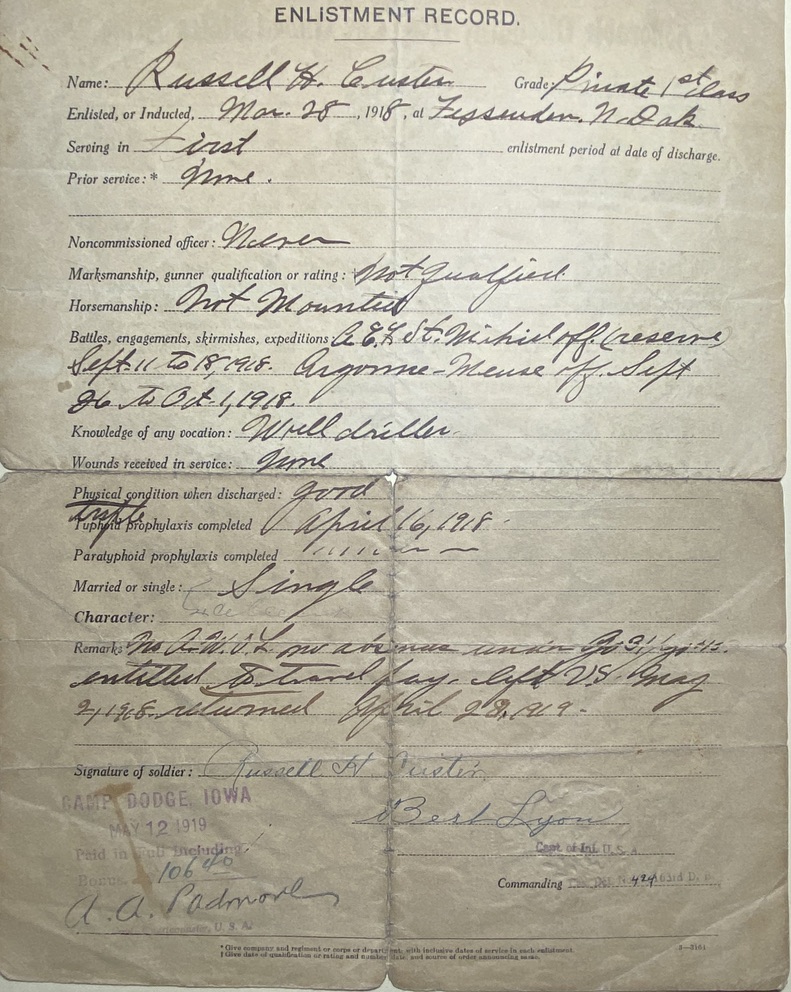 ENLISTMENT RECORD.
Name: Russell H. Custer Grade: Private 1st Class
Enlisted, or Inducted, Mar. 28, 1918, at Fessenden, N. Dak.
Serving in First enlistment period at date of discharge.
Prior service: * None.
Noncommissioned officer: Never
Marksmanship, gunner qualification or rating: Not qualified.
Horsemanship: Not Mounted
Battles, engagements, skirmishes, expeditions: A.E.F. St. Mihiel off. (reserve)
Sept. 11 to 18, 1918. Argonne-Meuse off. Sept
26 to Oct. 1, 1918.
Knowledge of any vocation: Well driller.
Wounds received in service: None
Physical condition when discharged: good
triple
Typhoid prophylaxis completed April 16, 1918.
Paratyphoid prophylaxis completed
Married or single: Single
Character:
Remarks: No A.W.O.L. no absence under G.O.
entitled to travel pay. left US. May
2, 1918. returned April 28, 1919.
Signature of soldier: Russell H Custer
CAMP DODGE, IOWA
MAY 12 1919
Bert Lyon
Paid in Full Including
Capt of Inf. U.S.A.
Bonus 106 40
Commanding 424 163rd D. B.
A. A. Padmore
U. S. A.
* Give company and regiment or corps or department, with inclusive dates of service in each enlistment.
† Give date of qualification or rating and number, date, and source of order announcing same.
3—3164